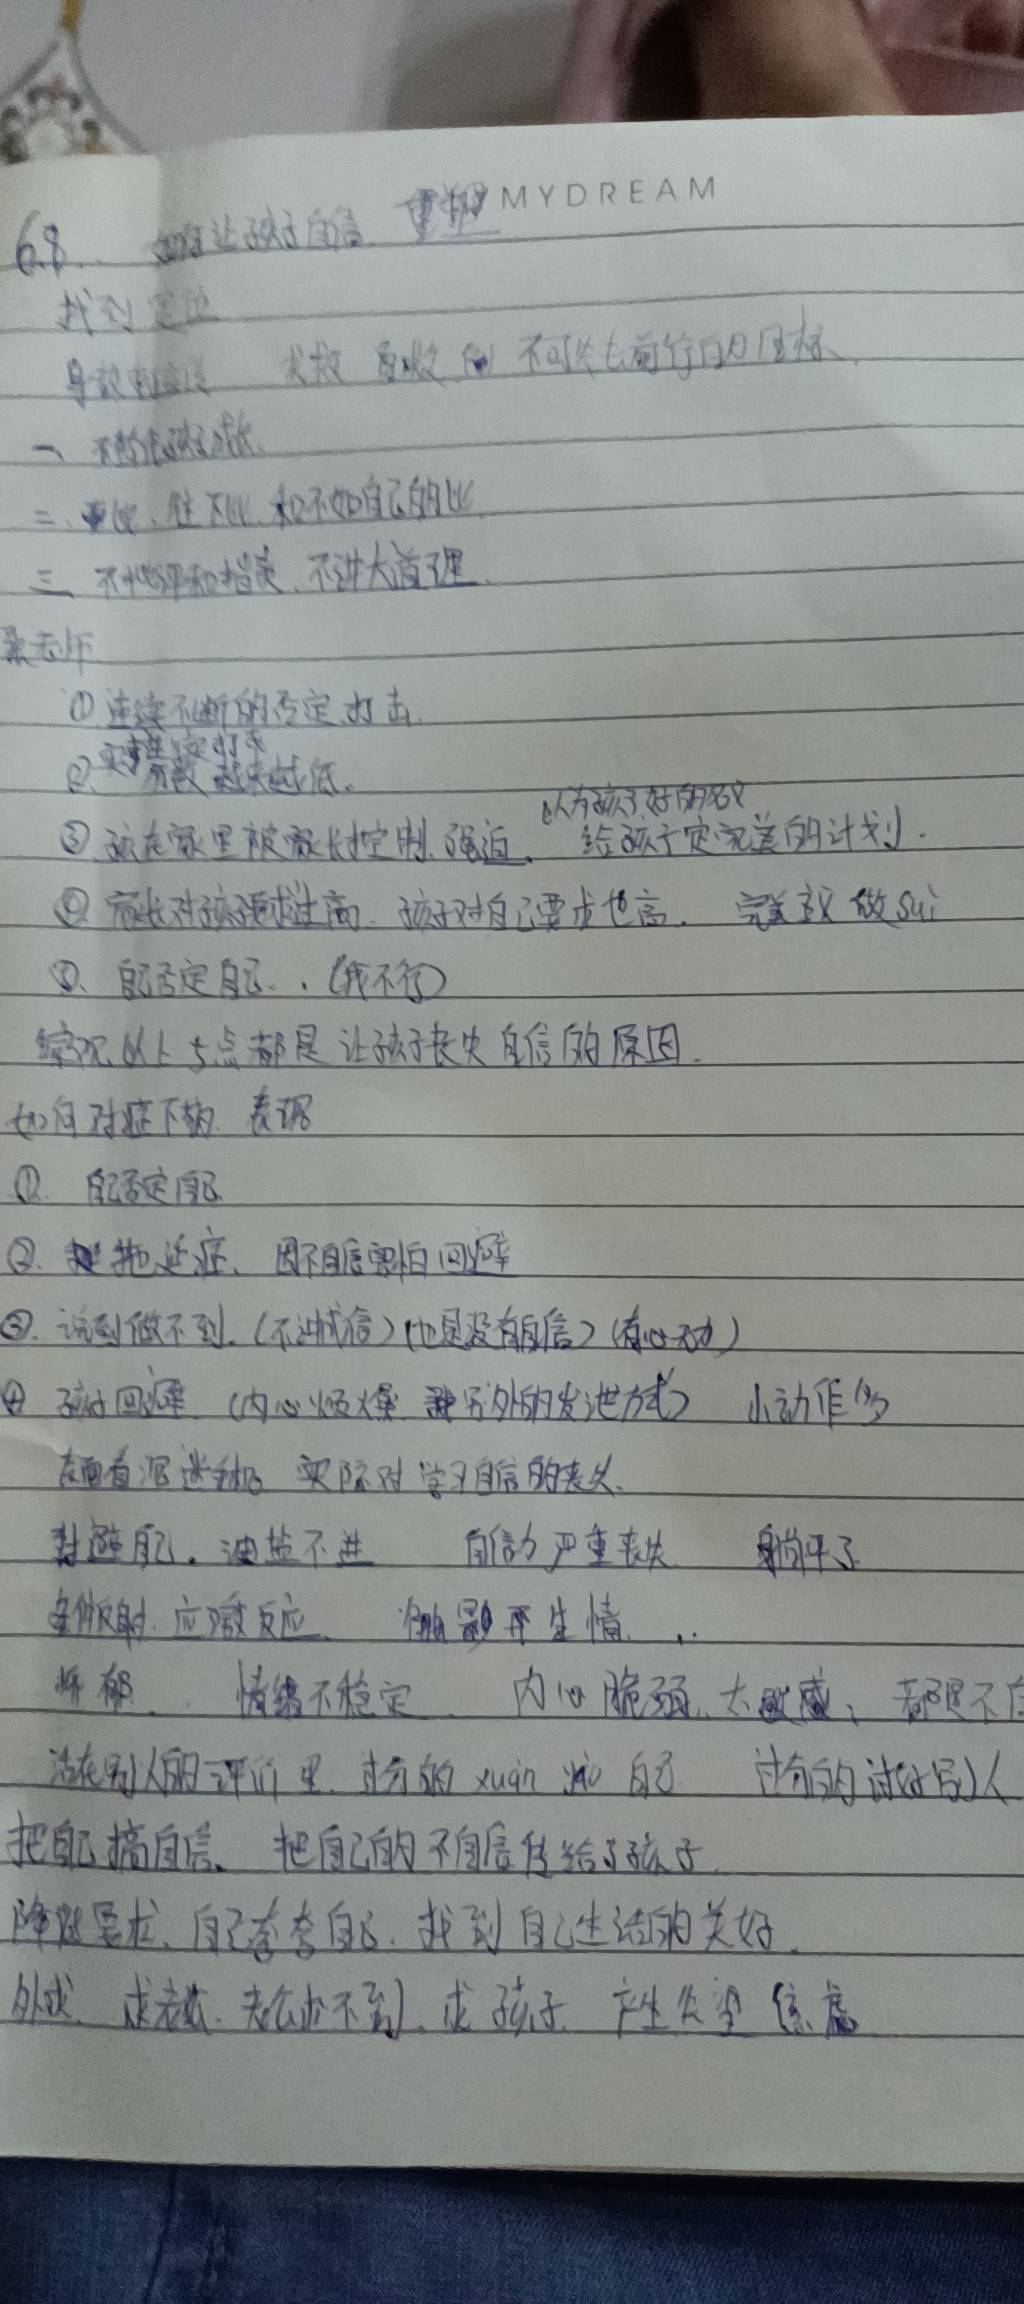 MYDREAM
6.8. 如何让孩子自信 重塑
找到定位
求救 不可失去前行的目标
一、孩子成长
二、往下比、和不如自己的比
三 不批评和指责、不讲大道理
老师
① 连续不断的否定打击
② 分数越来越低.
以为孩子好的名义
③ 孩在家里被家长控制、强迫、给孩子定完美的计划.
④ 家长对孩子要求过高、孩子对自己要求也高. 完美主义 做sui
⑤、自己否定自己..(我不行)
综观以上5点都是让孩子丧失自信的原因.
如何对症下药. 表现
①. 自己否定自己
②. 拖延症、因不自信害怕回避
③. 说到做不到.(不讲诚信)(也是没有自信)(有心无力)
④ 孩子回避 (内心烦燥 另外的发泄方式) 小动作多
表面看沉迷手机 实际对学习自信的丧失.
封避自己. 油盐不进 自信力严重丧失 躺平了
条件反射. 应激反应. 触景生情...
抑郁. 情绪不稳定. 内心脆弱、太敏感、都是不自
活在别人的评价里. 过分的xuàn yào自己 过分的讨好别人
把自己搞自信、把自己的不自信传给了孩子
降低要求、自己夸夸自己、找到自己生活的美好.
外求. 求老公. 老公求不到. 求孩子. 产生失望 焦虑